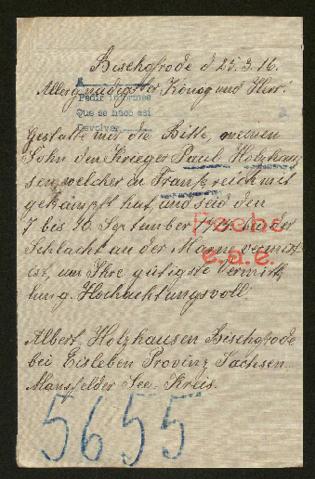 Bischofrode d 25.3.16.
Allergnädigster König und Herr.
Pedir informes
Que se hace así
Devolver
Gestatte mir die Bitte, meinen
Sohn den Krieger Paul Holzhau
sen, welcher in Frankreich mit
gekämpft hat und seid den
7 bis 10. September 1914 in der
Schlacht an der Marne vermißt
ist, um Ihre gütigste Vermitt
lung. Hochachtungsvoll.
Fecho
e.a.e.
Albert Holzhausen Bischofrode
bei Eisleben Provinz Sachsen
Mansfelder See-Kreis.
5655